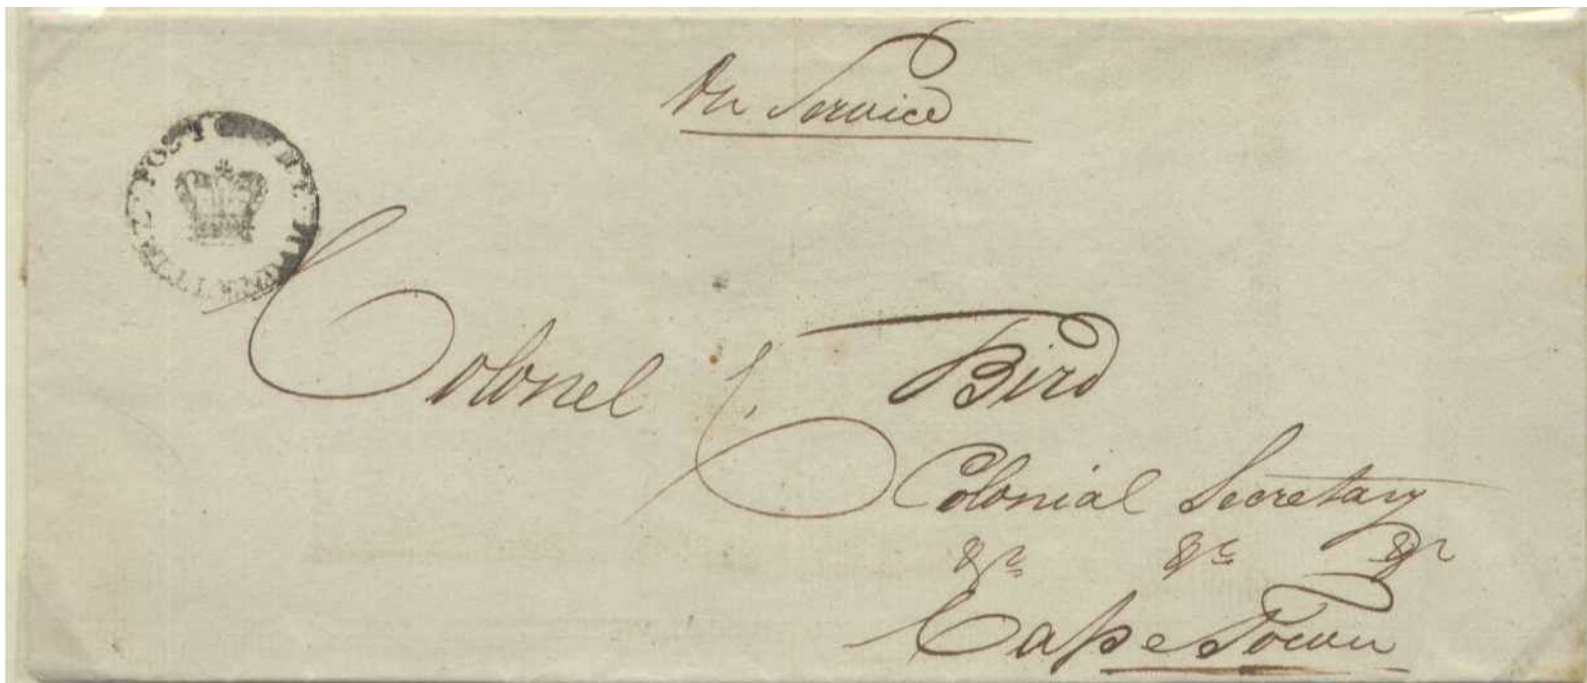 On Service
POST
Colonel C. Bird
Colonial Secretary
&c &c &c
Cape Town